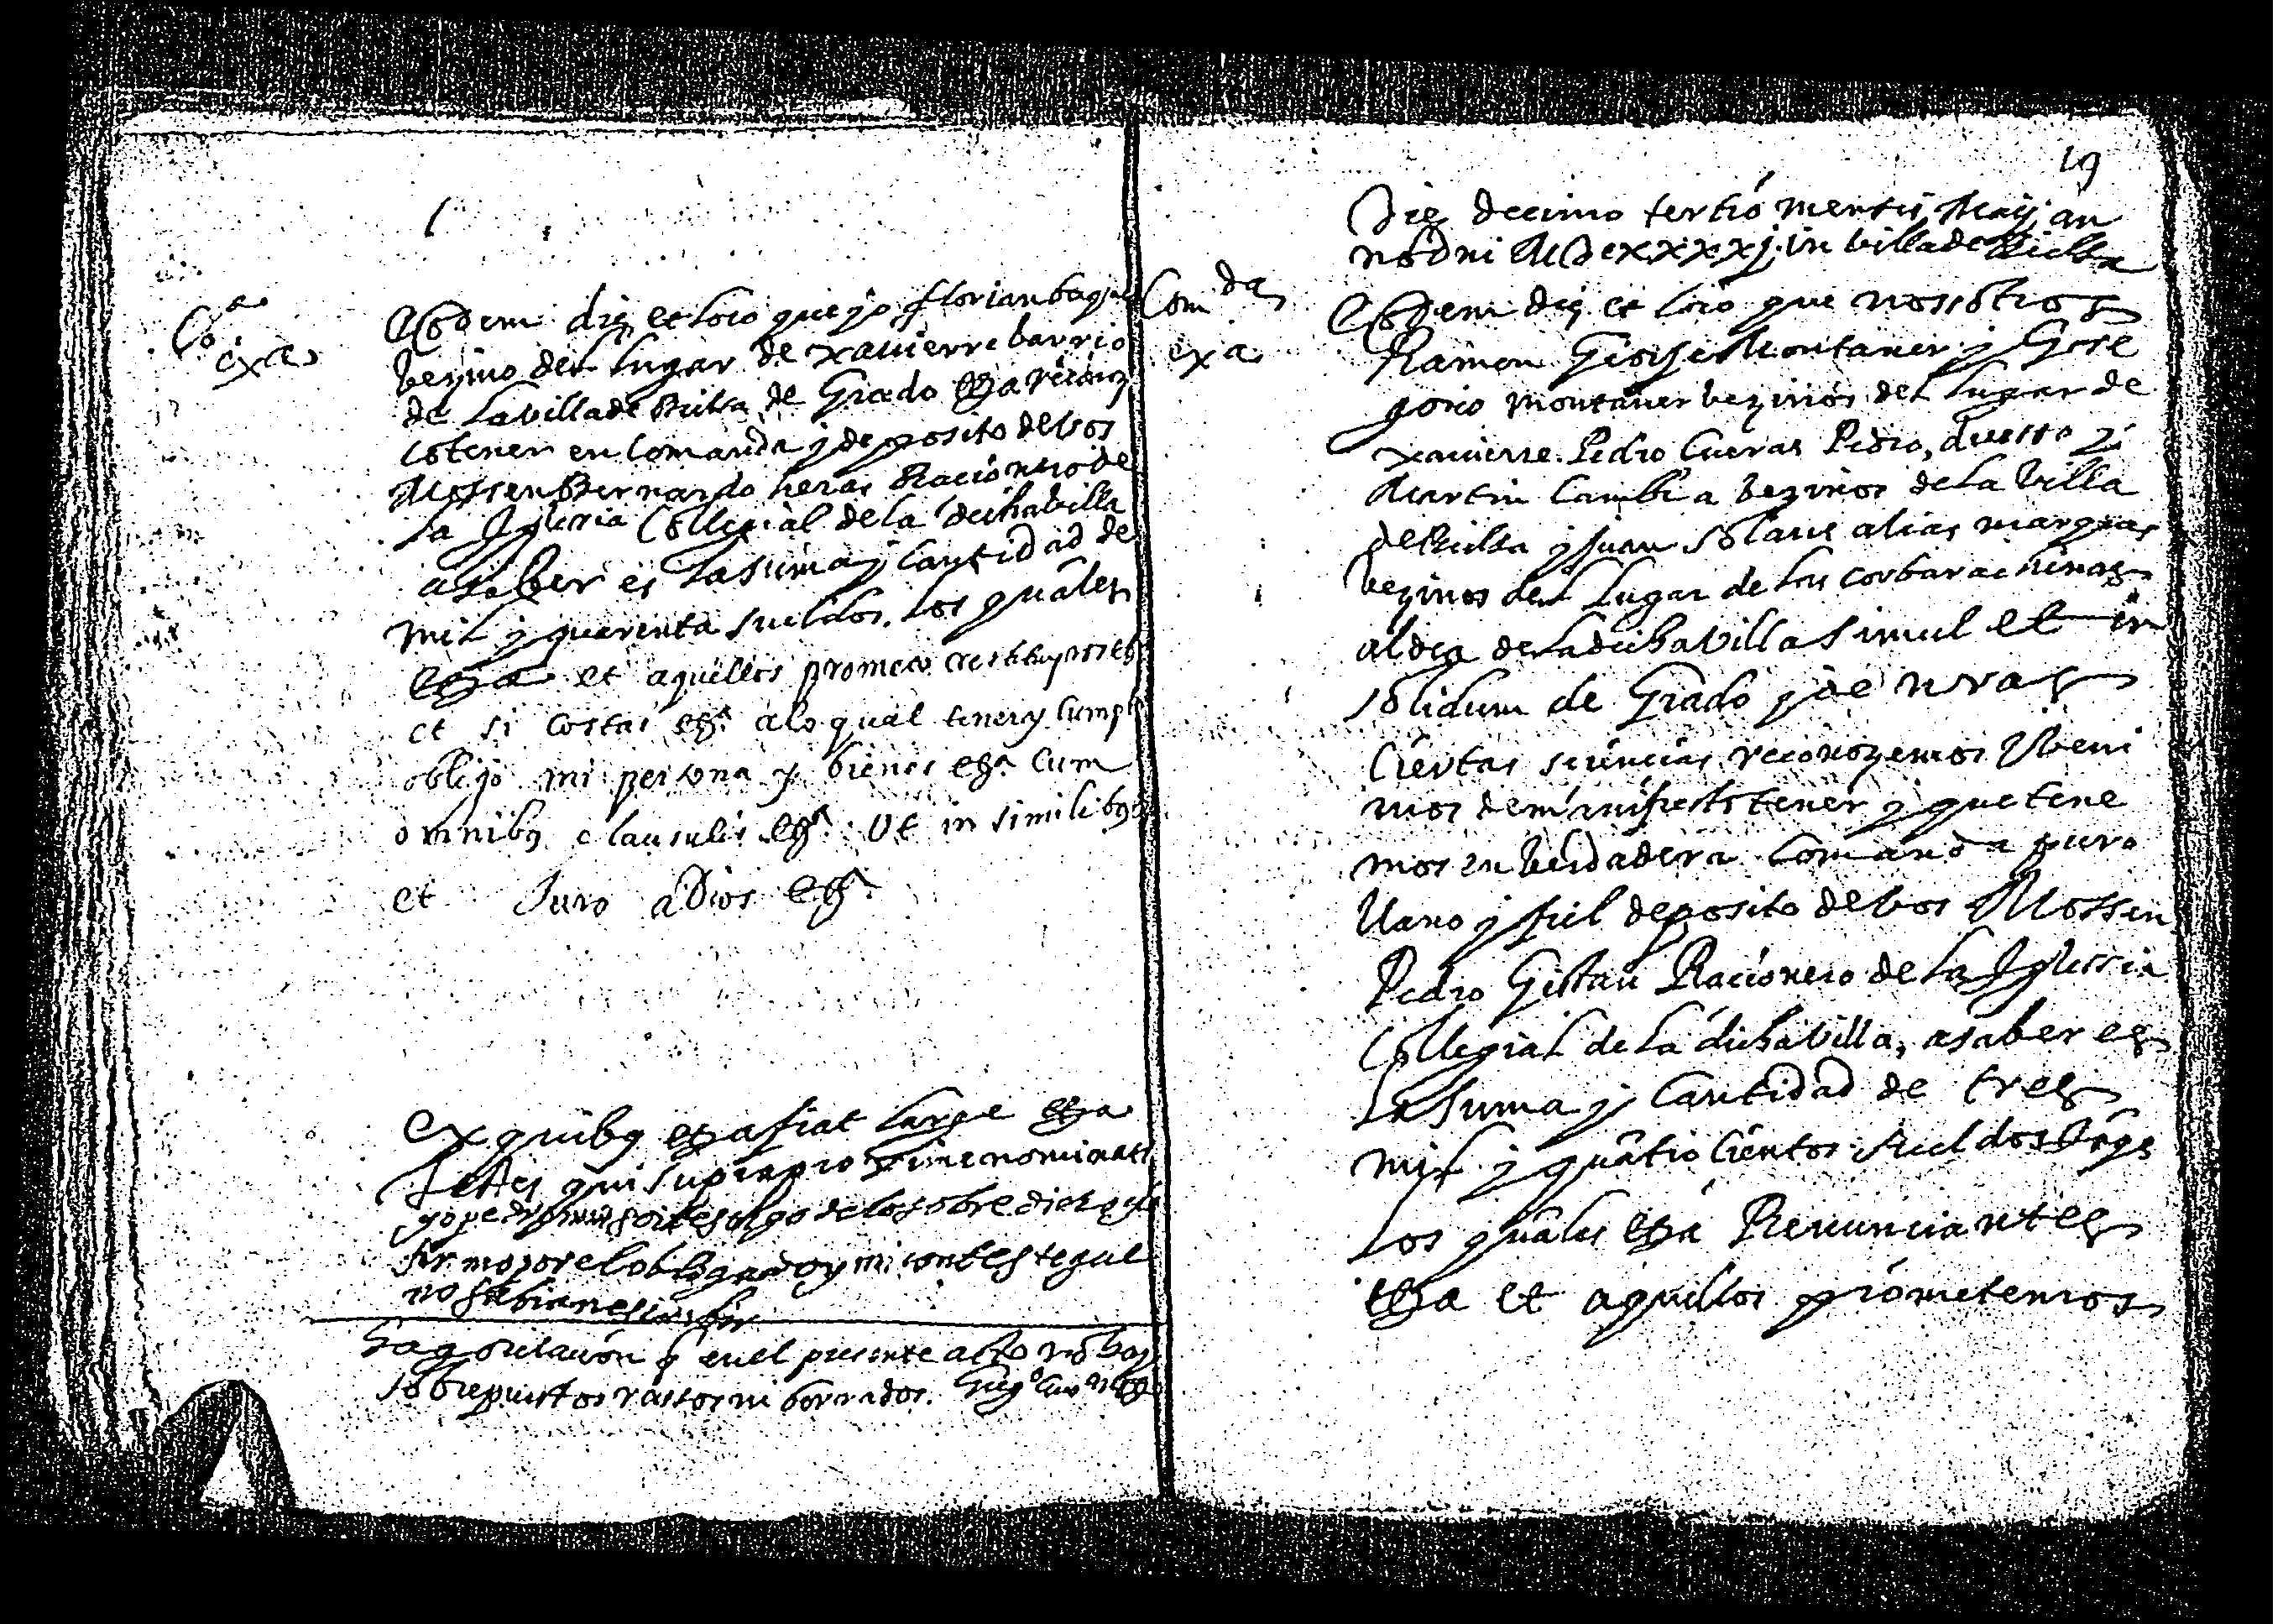 Co.a
exa
Eodem die et loco que yo florian
bezino del lugar de xauierre barrio
de la villa de Bielsa de Grado etza reconoz
co tener en comanda y deposito de vos
Mossen Bernardo heras Racionero de
la Iglesia Collegial de la dicha villa
asaber es la suma y cantidad de
mil y quarenta sueldos. los quales
etza et aquellos prometo restituyros etz
et si costas etz.a a lo qual tener y cumplir
obligo mi persona y bienes etz.a Cum
omnibus clausulis etz.a Ut in similibus
et Juro a Dios etz.a
ex quibus etza fiat large etza
Testes qui supra proxime nominati
yo pedro testigo de lo sobre dicho
firmo por el obligado y mi contestegue
no sabian escribir
En el presente acto no hay
sobrepuestos rassos ni borrados.
19
Die decimo tertio mensis Maij an
no Dni MDCXXXXj. in villa de Bielsa
Com da
exa
Eodem die et loco que nosotros
Ramon Montaner y Gre
gorio Montaner bezinos del lugar de
xauierre. Pedro Cueras Pedro, y
Martin Cambra bezinos de la villa
de Bielsa y Juan Solans alias marques
bezinos del lugar de las
aldea de la dicha villa simul et in
solidum de Grado y de nras
ciertas sciencias reconozemos y beni
mos de manifiesto tener y que tene
mos en verdadera Comanda puro
llano y fiel deposito de vos Mossen
Pedro Gistau Racionero de la Iglessia
Collegial de la dicha villa, asaber es
la suma y cantidad de tres
mil y quatro cientos sueldos Jaqs
los quales etza Renunciantes
etza et aquellos prometemos